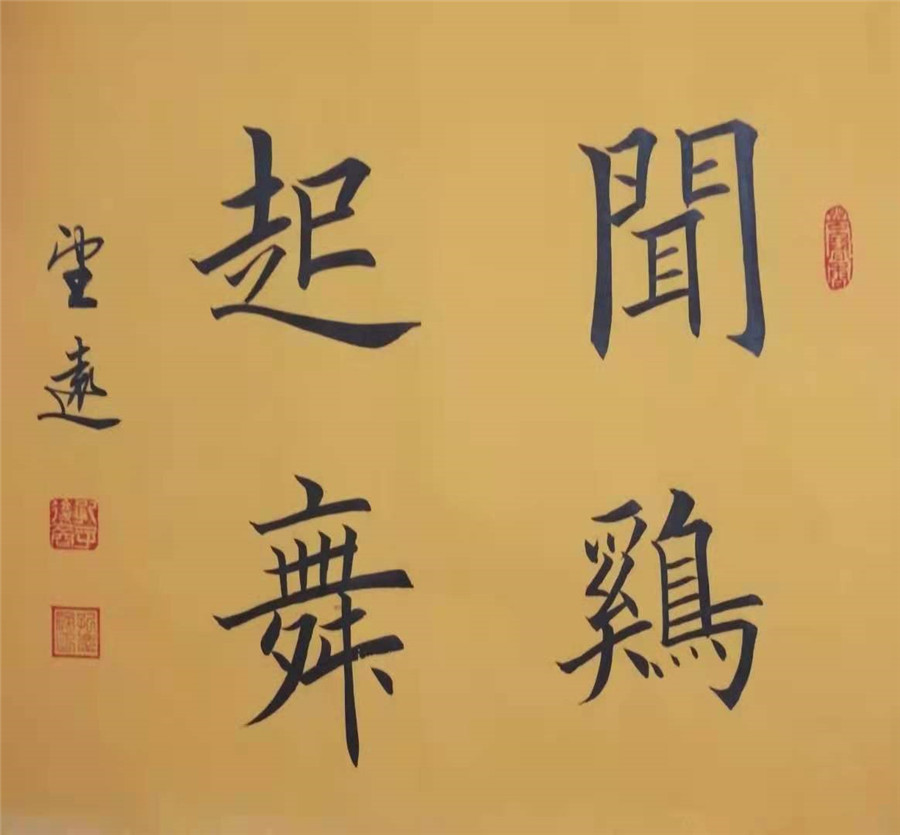 聞鷄
起舞
望遠